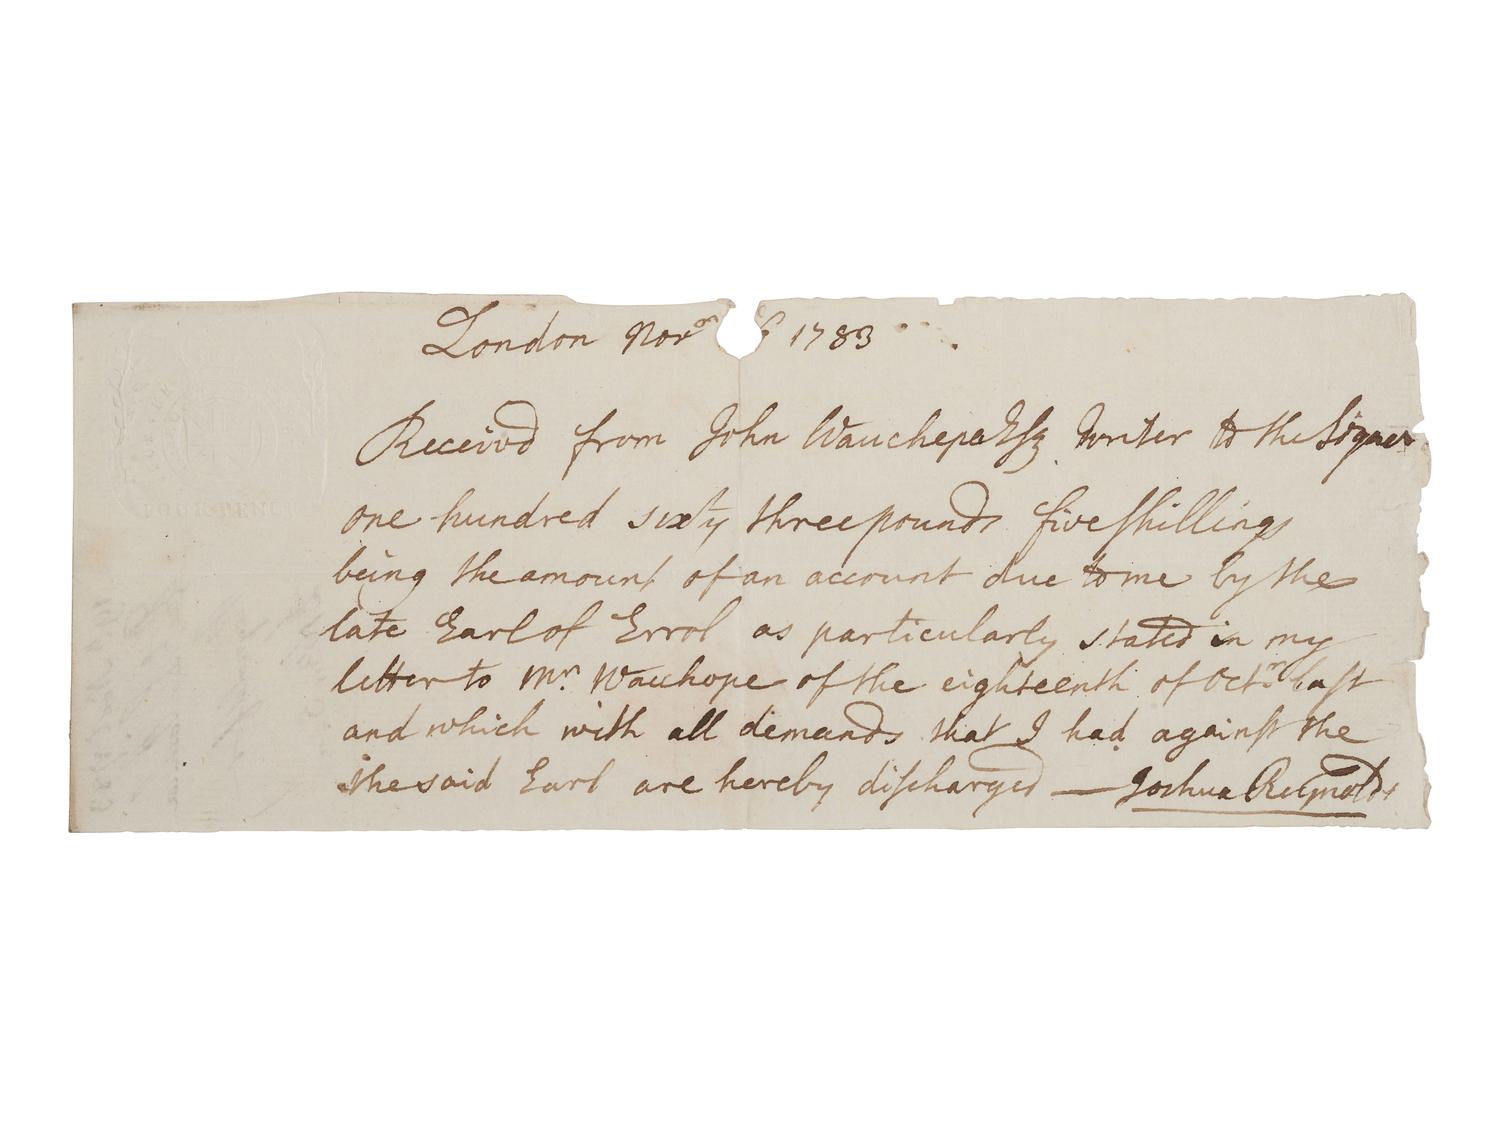 London Novr 6 1783
Receivd from John Wauchope Esq Writer to the Signet
one hundred sixty three pounds five shillings
being the amount of an account due to me by the
late Earl of Errol as particularly stated in my
letter to Mr. Wauhope of the eighteenth of Octr last
and which with all demands that I had against the
the said Earl are hereby discharged — Joshua Reynolds
FOUR PENCE